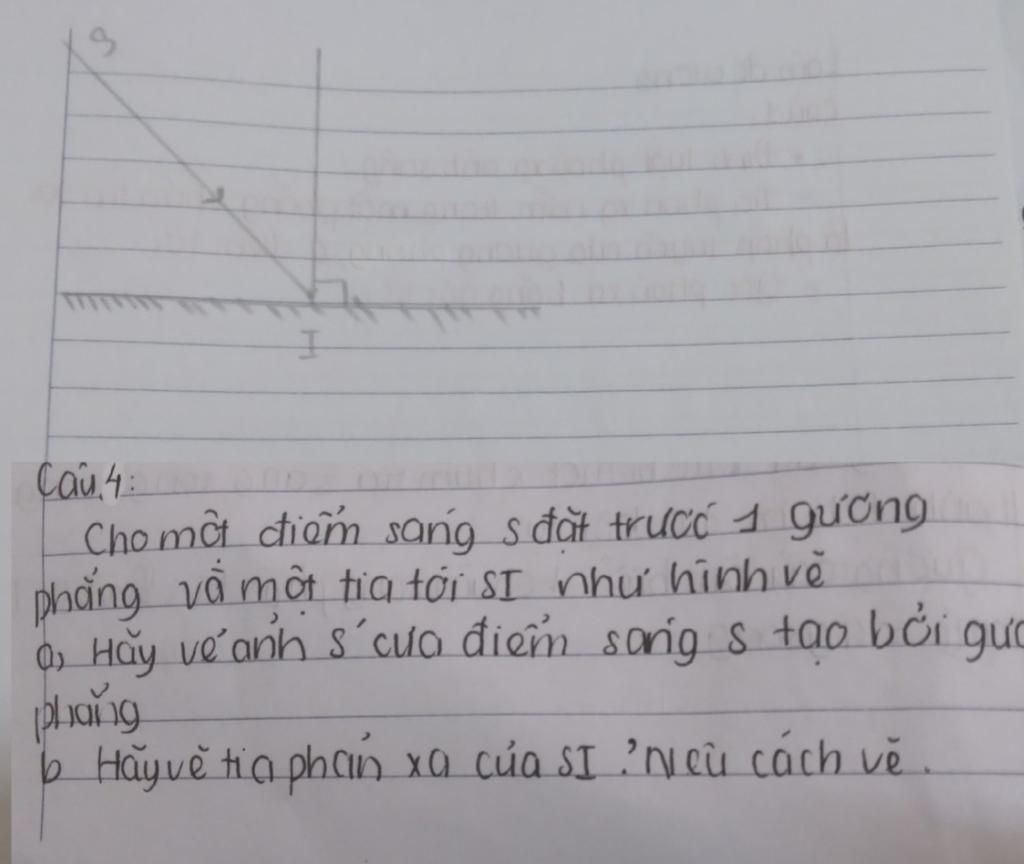 S
I
Câu 4:
Cho một điểm sáng S đặt trước 1 gương
phẳng và một tia tới SI như hình vẽ
a, Hãy vẽ ảnh S' của điểm sáng S tạo bởi gươ
phẳng
b Hãy vẽ tia phản xạ của SI ? Nêu cách vẽ.